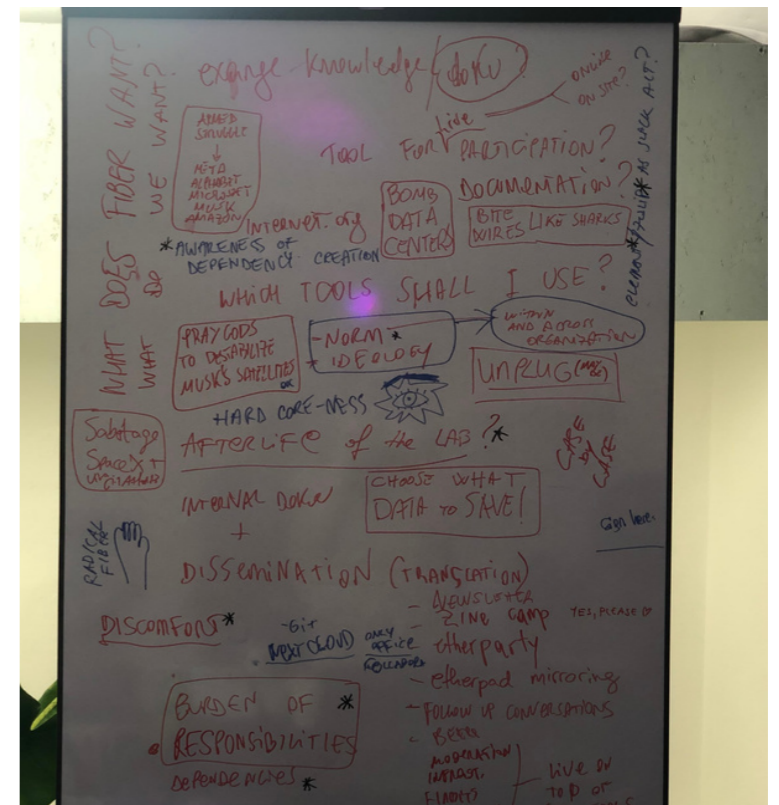 WHAT DOES FIBER WANT?
WHAT DO WE WANT?
exange-knowledge / DOKU?
ONLINE
ON SITE?
ARMED
STRUGGLE
↓
META
ALPHABET
MICROSOFT
MUSK
AMAZON
TOOL FOR live PARTICIPATION?
DOCUMENTATION?
AS SLACK ALT?
INTERNET.org
BOMB
DATA
CENTERS
BITE
WIRES LIKE SHARKS
*AWARENESS OF
DEPENDENCY CREATION
WHICH TOOLS SHALL I USE?
PRAY GODS
TO DESTABILIZE
MUSK'S SATELLITES
-NORM *
* IDEOLOGY
WITHIN
AND ACROSS
ORGANIZATION
UNPLUG
HARD CORE-NESS
Sabotage
SpaceX +
AFTERLIFE of the LAB?*
CASE
by
CASE
INTERNAL DOKU
+
CHOOSE WHAT
DATA TO SAVE!
RADICAL
FIBER
Sign here:
DISSEMINATION (TRANSLATION)
DISCOMFORT*
-Git
NEXTCLOUD
ONLY
OFFICE
COLLABORA
- NEWSLETTER
- ZINE camp YES, PLEASE
etherparty
- etherpad mirroring
- FOLLOW UP CONVERSATIONS
- BEER
BURDEN OF *
RESPONSIBILITIES
DEPENDENCIES *
MODERATION
INFRAST.
- live on
top of